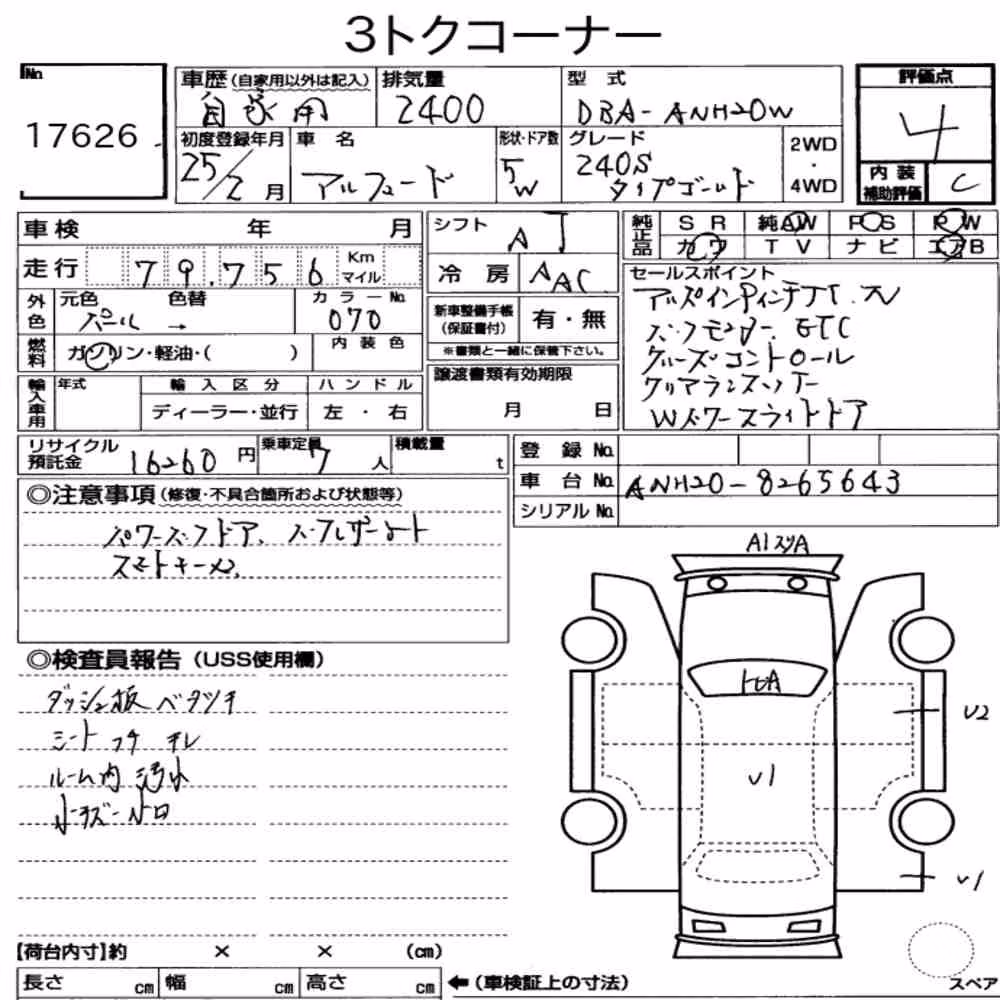 3トクコーナー
No.
17626
車歴（自家用以外は記入）
自家用
排気量
2400
型式
DBA-ANH20W
評価点
4
初度登録年月
25/2月
車名
アルファード
形状・ドア数
5W
グレード
240S
タイプゴールド
2WD
・
4WD
内装
補助評価
C
車検 年 月
シフト
AT
純正品
SR 純AW PS PW
カワ TV ナビ エアB
走行 79,756 Km マイル
冷房
AAC
セールスポイント
外色
元色 色替
パール →
カラーNo.
070
新車整備手帳
（保証書付）
有・無
※書類と一緒に保管下さい。
ETC
クルーズコントロール
クリアランスソナー
Wパワースライドドア
燃料
ガソリン・軽油・( )
内装色
輸入車用
年式
輸入区分
ハンドル
ディーラー・並行
左・右
譲渡書類有効期限
月 日
リサイクル
預託金
16260円
乗車定員
7人
積載量
t
登録No.
車台No.
ANH20-8265643
シリアルNo.
◎注意事項（修復・不具合箇所および状態等）
スマートキー
◎検査員報告（USS使用欄）
ダッシュ板ベタツキ
シート
ルーム内汚れ
A1
U2
U1
U1
【荷台内寸】約 × × (cm)
長さ cm 幅 cm 高さ cm
←（車検証上の寸法）
スペア